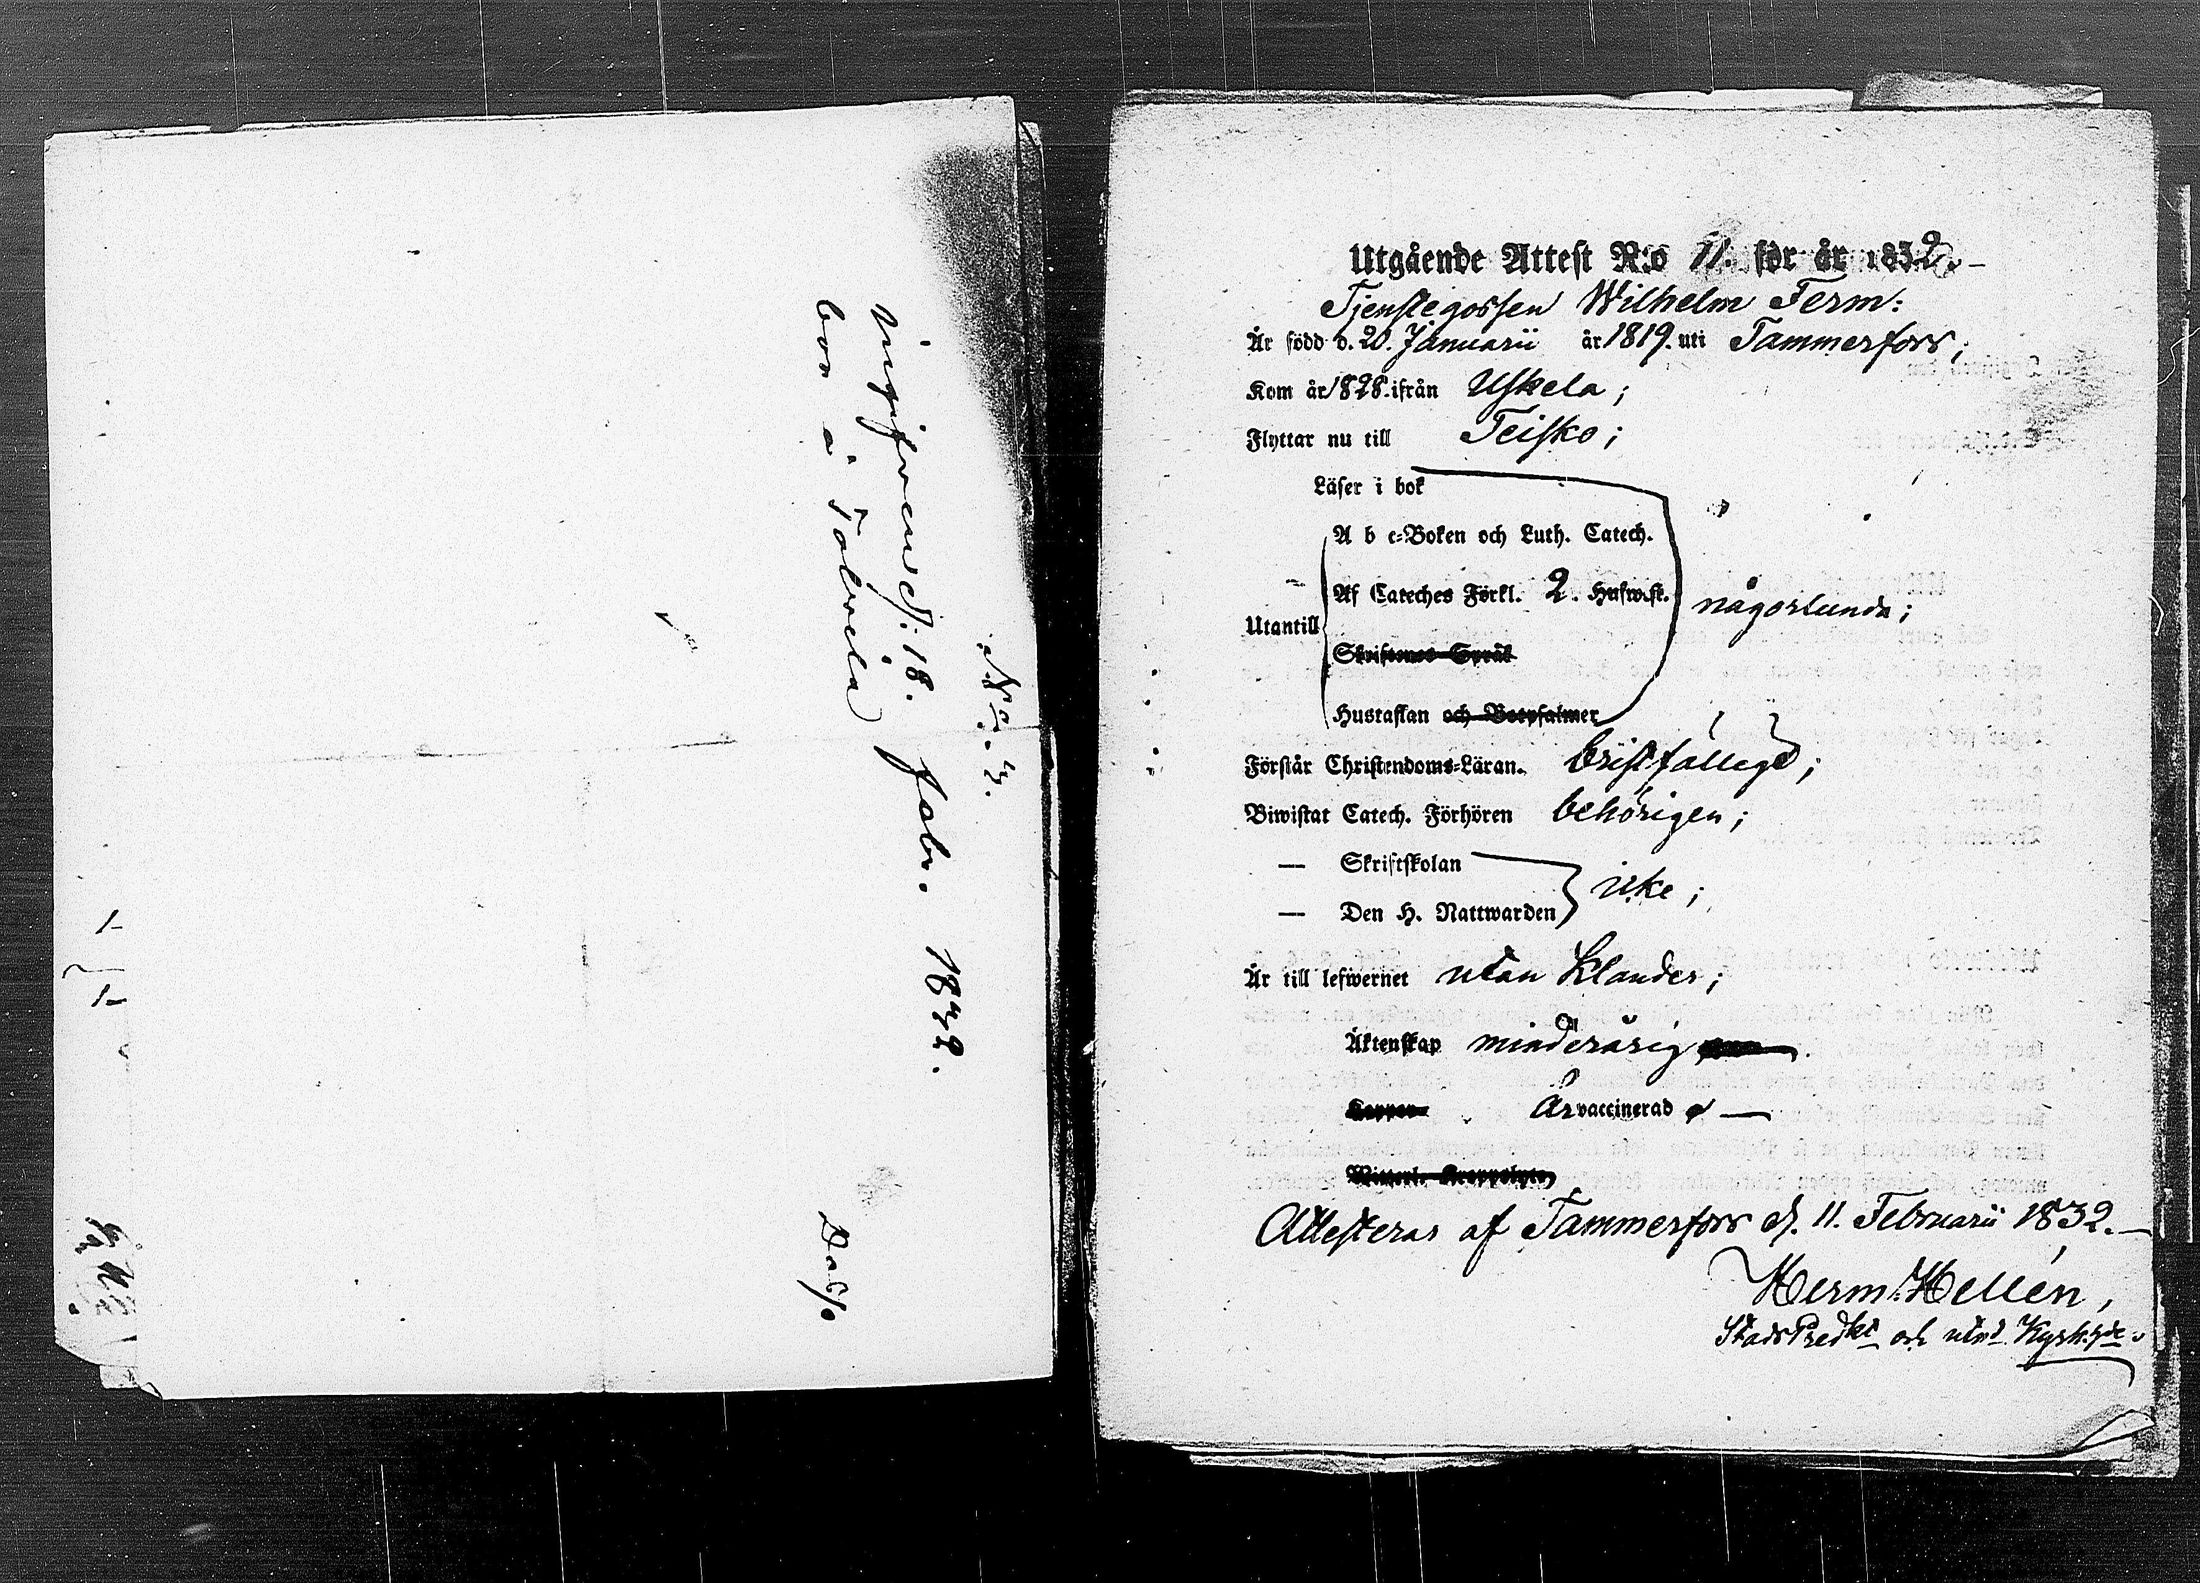 No. 4.
d. 18. Febr. 1832.
bor å
Utgående Attest N:o 11. för år 1832.
Tjenstegossen Wilhelm Ferm:
Är född d. 20. Januarii år 1819. uti Tammerfors;
Kom år 1828. ifrån Uskela;
Flyttar nu till Teisko;
Läser i bok
A b c-Boken och Luth. Catech.
Af Cateches Förkl. 2. Hufwst. någorlunda;
Utantill
Skriftenes Språk
Hustaflan och Botpsalmer
Förstår Christendoms-Läran. bristfälligt;
Biwistat Catech. Förhören behörigen;
— Skriftskolan
icke;
— Den H. Nattwarden
Är till lefwernet utan klander;
Äktenskap minderårig
Koppor Är vaccinerad
Witterl. Kroppslyte
Attesteras af Tammerfors d. 11. Februarii 1832.
Herm: Hellén,